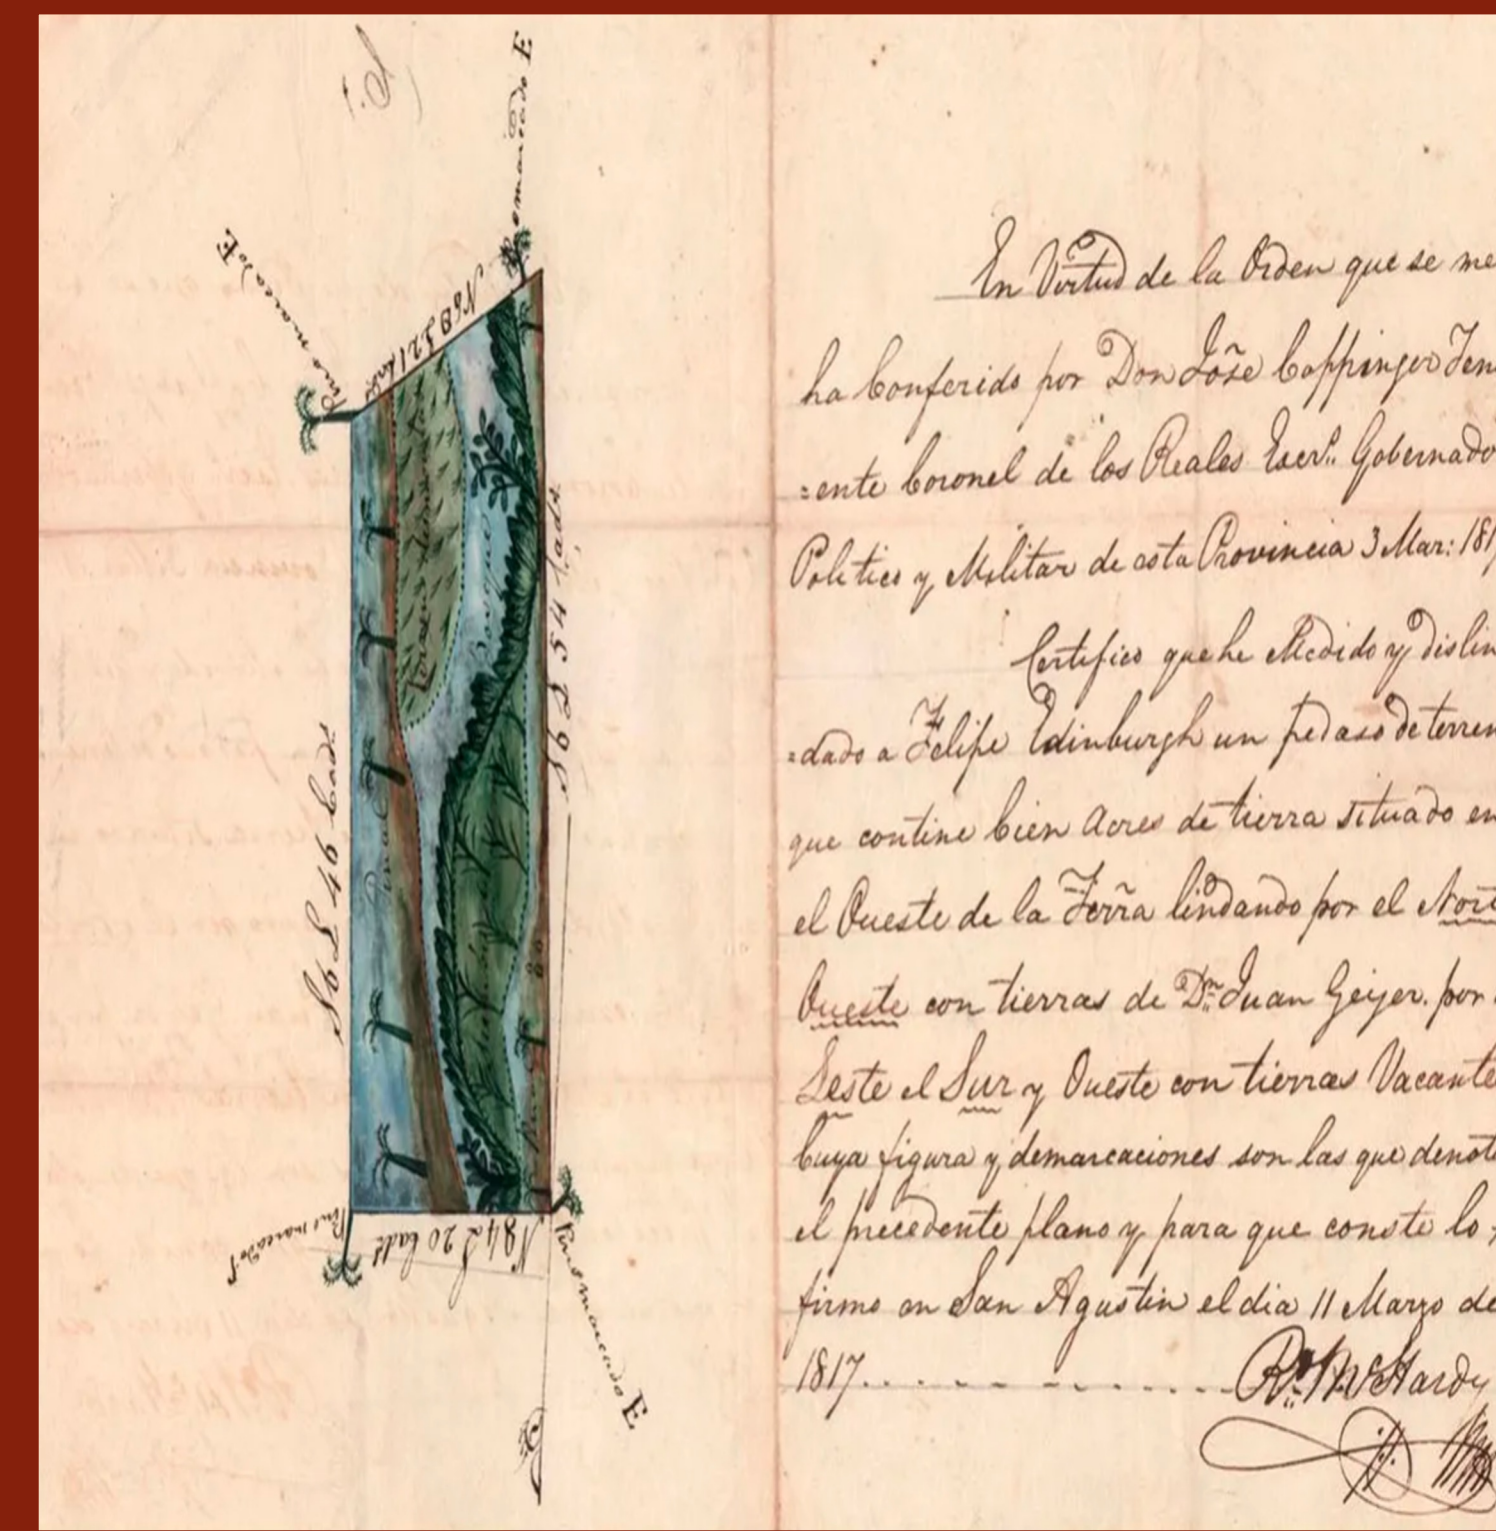 Pino marcado E
marcado E
N 68 E 21 Cads
S 6 E 46 Cads
S 6 E 54 Cads
Bosque
Pinal
Pinal
N 84 E 20 Cads
Pino marcado E
En Virtud de la Orden que se me
ha Conferido por Don Jose Coppinger Teni
=ente Coronel de los Reales Exer.s Gobernado
Politico y Militar de esta Provincia 3 Mar: 181
Certifico que he Medido y deslin
=dado a Felipe Edinburgh un pedaso de terren
que contine Cien Acres de tierra situado en
el Oueste de la Terra lindando por el Nort
Oueste con tierras de Dn Juan Geiger. por
Leste el Sur y Oueste con tierras Vacante
Cuya figura y demarcaciones son las que denot
el precedente plano y para que conste lo
firmo en San Agustin el dia 11 Marzo de
1817 Rt McHardy